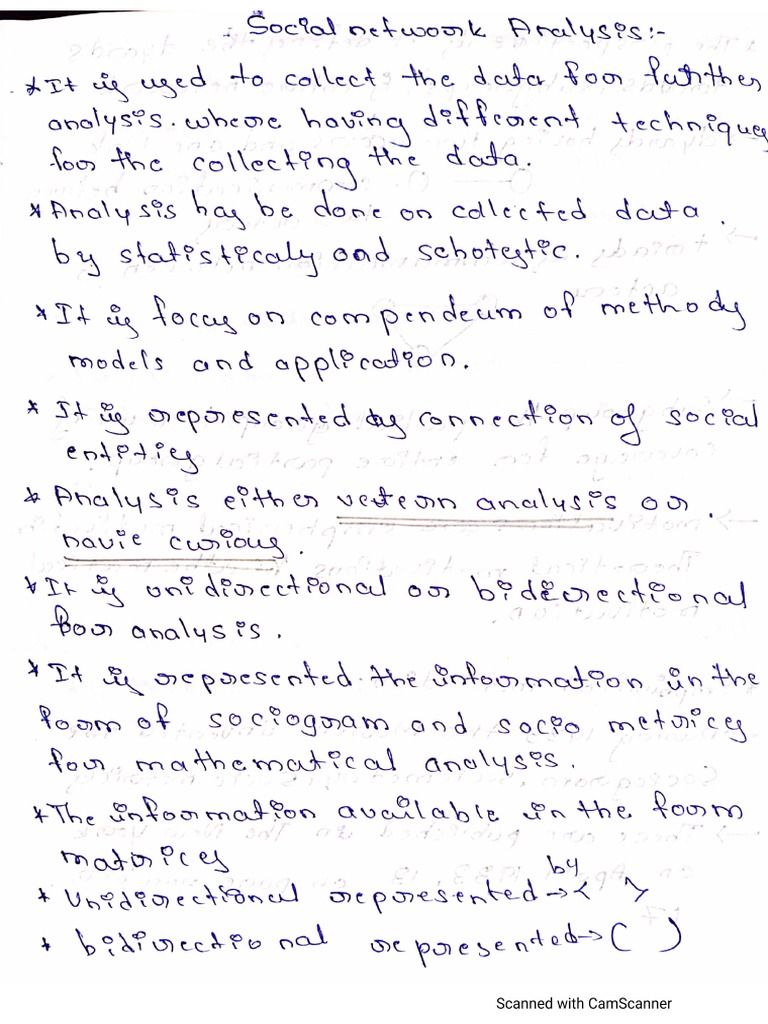 :- Social network Analysis:-
* It is used to collect the data for further
analysis. where having different techniques
for the collecting the data.
* Analysis has be done on collected data.
by statisticaly and schotestic.
* It is focus on compendeum of methods
models and application.
* It is represented by connection of social
entities
* Analysis either vetern analysis or.
navie curious.
* It is unidirectional or bidirectional
for analysis.
* It is represented the information in the
form of sociogram and socio metrices
for mathematical analysis.
* The information available in the form
matrices
* Unidirectional represented by → < >
* bidirectional represented → ( )
Scanned with CamScanner